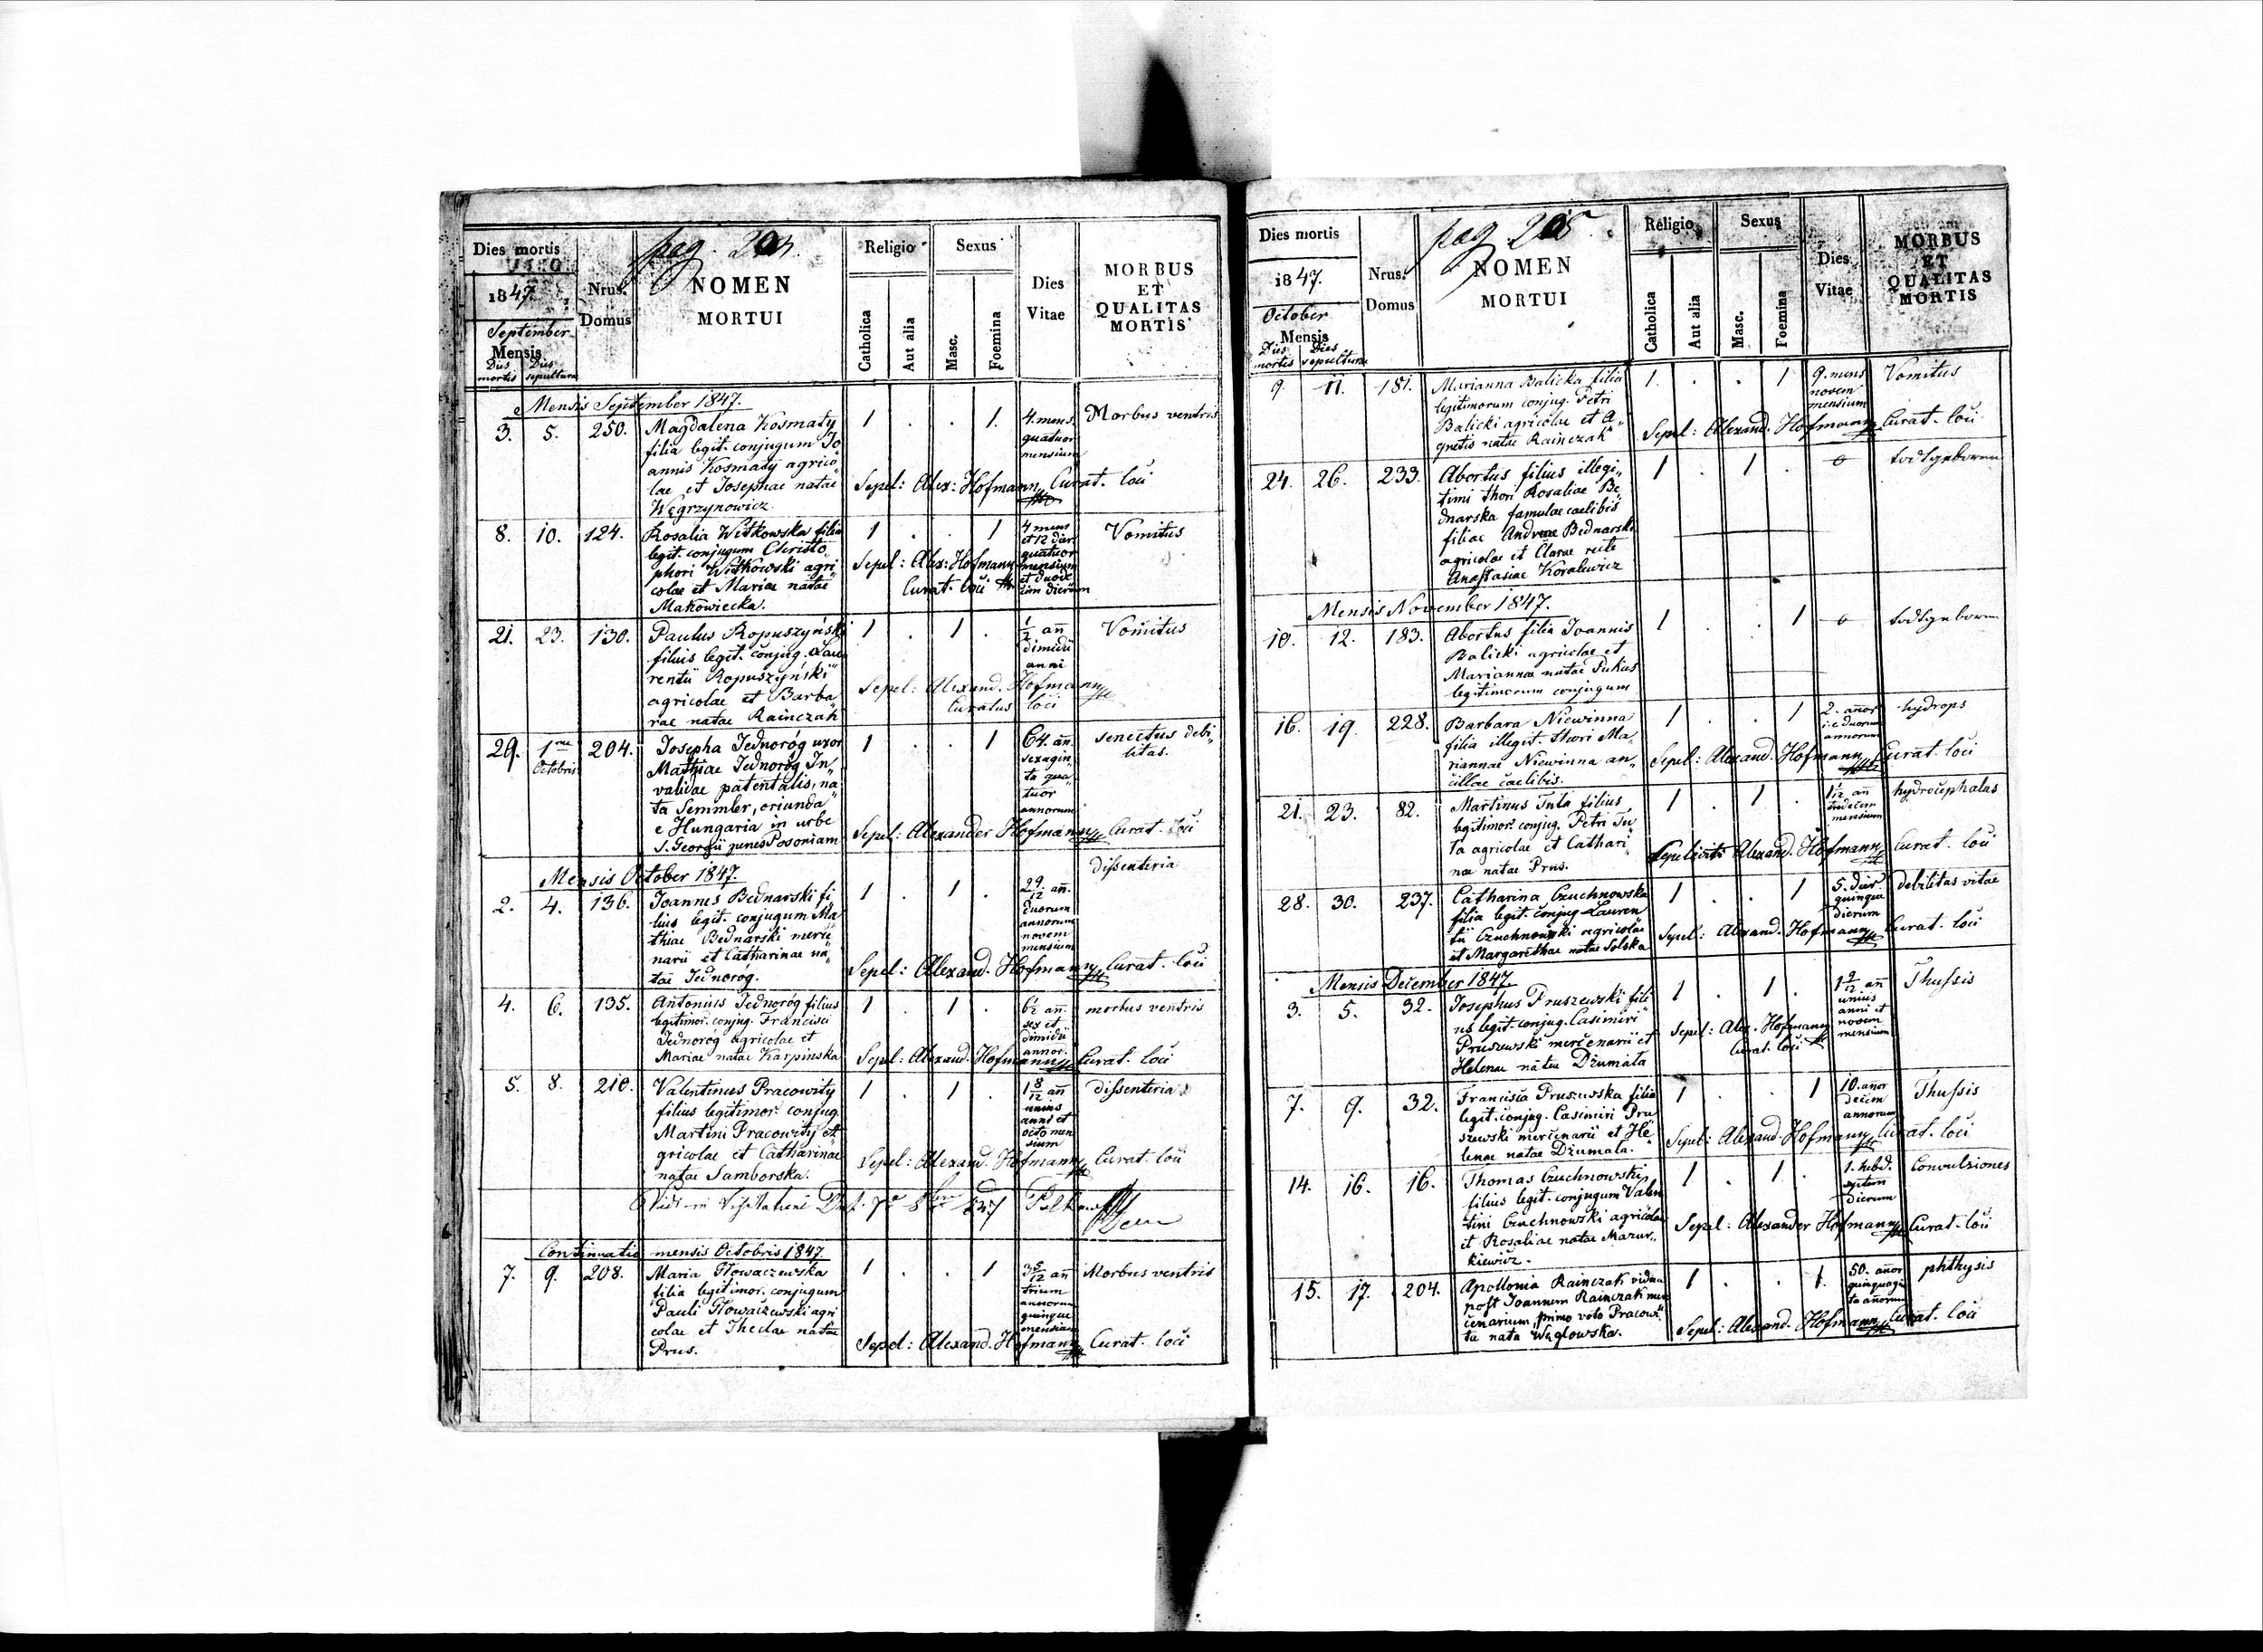 Dies mortis
1847.
September
Mensis
Dies mortis Dies sepulturae
Nrus. Domus
pag.
NOMEN
MORTUI
Religio
Catholica
Aut alia
Sexus
Masc.
Foemina
Dies
Vitae
MORBUS
ET
QUALITAS
MORTIS
Mensis September 1847.
3. 5. 250. Magdalena Kosmaty 1 . . 1. 4. mens. Morbus ventris
filia legit. conjugum Jo„ quatuor
annis Kosmaty agrico„ mensium
lae et Josephae natae Sepel: Alex: Hofmann Curat. loci
Węgrzynowicz.
8. 10. 124. Rosalia Witkowska filia 1 . . 1 4 mens Vomitus
legit. conjugum Christo„ et 12 dier.
phori Witkowski agri„ Sepel: Alex: Hofmann quatuor mensium
colae et Mariae natae Curat. loci et duodecim dierum
Makowiecka.
21. 23. 130. Paulus Ropuszyński 1 . 1 . 1/2 añ Vomitus
filius legit. conjug. Lau„ dimidii
rentii Ropuszyński anni
agricolae et Barba„ Sepel: Alexand. Hofmann
rae natae Rainczak Curatus loci
29. 1ma Octobris 204. Josepha Jednoróg uxor 1 . . 1 64. añ. senectus debi„
Mathiae Jednoróg In„ sexagin„ litas.
validae patentalis, na„ ta qua„
ta Semmler, oriunda tuor
e Hungaria in urbe annorum
S. Georgii penes Posoniam Sepel: Alexander Hofmann Curat. loci
Mensis October 1847. dissenteria
2. 4. 136. Joannes Bednarski fi„ 1 . 1 . 2 9/12 añ.
lius legit. conjugum Ma„ duorum
thiae Bednarski merce„ annorum
narii et Catharinae na„ novem mensium
tae Jednorog. Sepel: Alexand. Hofmann Curat. loci
4. 6. 135. Antonius Jednoróg filius 1 . 1 . 6 1/2 añ. morbus ventris
legitimor. conjug. Francisci sex et
Jednoróg agricolae et dimidii
Mariae natae Karpinska annor. Sepel: Alexand. Hofmann Curat. loci
5. 8. 210. Valentinus Pracowity 1 . 1 . 1 8/12 añ dissenteria
filius legitimor. conjug. unius
Martini Pracowity a„ anni et
gricolae et Catharinae octo mensium
natae Samborska. Sepel: Alexand. Hofmann Curat. loci
Continuatio mensis Octobris 1847.
7. 9. 208. Maria Głowaczewska 1 . . 1 3 5/12 añ Morbus ventris
filia legitimor. conjugum trium
Pauli Głowaczewski agri annorum
colae et Theclae natae quinque mensium
Prus. Sepel: Alexand. Hofmann Curat. loci
Dies mortis
1847.
October
Mensis
Dies mortis Dies sepulturae
Nrus. Domus
pag.
NOMEN
MORTUI
Religio
Catholica
Aut alia
Sexus
Masc.
Foemina
Dies
Vitae
MORBUS
ET
QUALITAS
MORTIS
9. 11. 181. Marianna Balicka filia 1. . . 1 9. mens Vomitus
legitimorum conjug. Petri novem
Balicki agricolae et A„ mensium
gnetis natae Rainczak Sepel: Alexand. Hofmann Curat. loci
24. 26. 233. Abortus filius illegi„ 1 . 1 . o todtgeboren
timi thori Rosaliae Be„
dnarska famulae caelibis
filiae Andreae Bednarski
agricolae et Clarae recte
Anastasiae Koralewicz
Mensis November 1847.
10. 12. 183. Abortus filia Joannis 1 . . 1 o todtgeboren
Balicki agricolae et
Mariannae natae Pukas
legitimorum conjugum
16. 19. 228. Barbara Niewinna 1 . . 1 2. añor hydrops
filia illegit. thori Ma„ i.e. duorum
riannae Niewinna an„ annorum
cillae caelibis. Sepel: Alexand. Hofmann Curat. loci
21. 23. 82. Martinus Tuta filius 1 . 1 . 1 1/12 añ hydrocephalus
legitimor. conjug. Petri Tu„ tredecim
ta agricolae et Cathari„ mensium
nae natae Prus. Sepelivit Alexand. Hofmann Curat. loci
28. 30. 237. Catharina Czuchnowska 1 . . 1 5. dier. debilitas vitae
filia legit. conjug. Lauren quinque
tii Czuchnowski agricolae dierum
et Margarethae natae Solska Sepel: Alexand. Hofmann Curat. loci
Mensis December 1847.
3. 5. 32. Josephus Pruszewski fili„ 1 . 1 . 1 9/12 añ Thussis
us legit. conjug. Casimiri unius
Pruszewski mercenarii et anni et novem
Helenae natae Dżumała mensium Sepel: Alex. Hofmann Curat. loci
7. 9. 32. Francisca Pruszewska filia 1 . . 1 10. añor Thussis
legit. conjug. Casimiri Pru decem
szewski mercenarii et He„ annorum
lenae natae Dżumała. Sepel: Alexand. Hofmann Curat. loci
14. 16. 16. Thomas Czuchnowski 1 . 1 . 1. hebd. Convulsiones
filius legit. conjugum Valen septem
tini Czuchnowski agricolae dierum
et Rosaliae natae Mazur„ Sepel: Alexander Hofmann Curat. loci
kiewicz.
15. 17. 204. Apollonia Rainczak vidua 1 . . 1. 50. añor phthysis
post Joannem Rainczak mer quinquagin
cenarium, primo voto Pracowi„ ta añorum
ta nata Węglowska. Sepel: Alexand. Hofmann Curat. loci